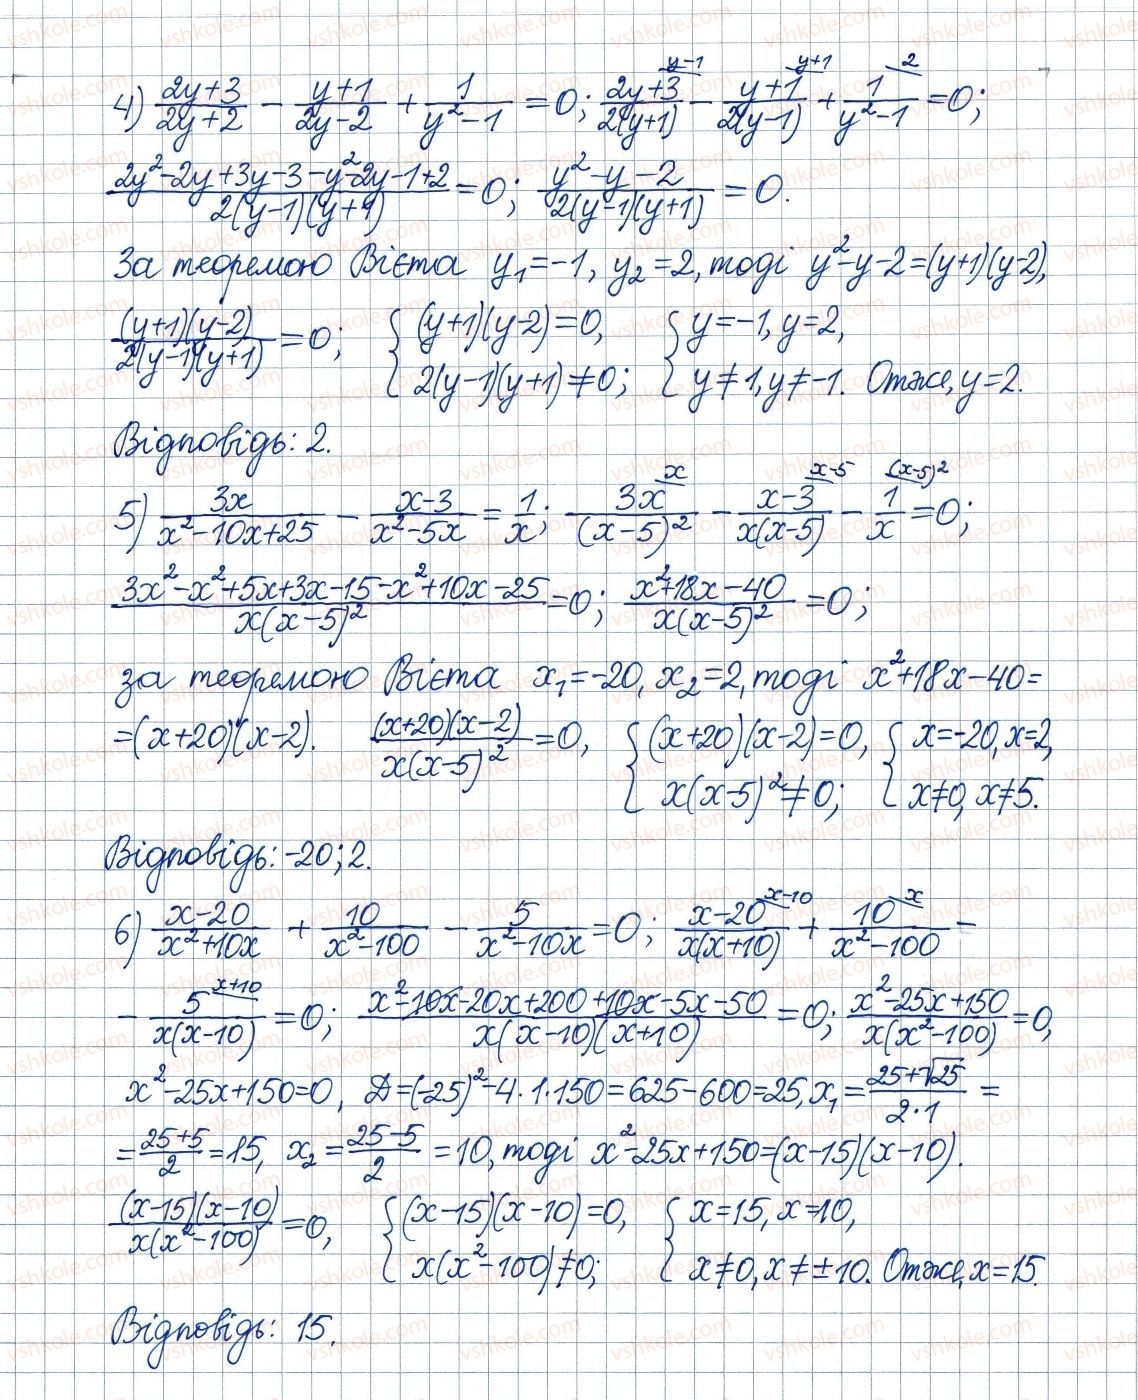 4) (2y+3)/(2y+2) − (y+1)/(2y−2) + 1/(y²−1) = 0; (2y+3)^(y−1)/(2(y+1)) − (y+1)^(y+1)/(2(y−1)) + 1^(2)/(y²−1) = 0;
(2y²−2y+3y−3−y²−2y−1+2)/(2(y−1)(y+1)) = 0; (y²−y−2)/(2(y−1)(y+1)) = 0.
За теоремою Вієта y₁=−1, y₂=2, тоді y²−y−2=(y+1)(y−2),
((y+1)(y−2))/(2(y−1)(y+1)) = 0; { (y+1)(y−2)=0, { y=−1, y=2,
2(y−1)(y+1)≠0; y≠1, y≠−1. Отже, y=2.
Відповідь: 2.
5) 3x/(x²−10x+25) − (x−3)/(x²−5x) = 1/x; 3x^(x)/(x−5)² − (x−3)^(x−5)/(x(x−5)) − 1^((x−5)²)/x = 0;
(3x²−x²+5x+3x−15−x²+10x−25)/(x(x−5)²) = 0; (x²+18x−40)/(x(x−5)²) = 0;
за теоремою Вієта x₁=−20, x₂=2, тоді x²+18x−40=
=(x+20)(x−2). ((x+20)(x−2))/(x(x−5)²) = 0, { (x+20)(x−2)=0, { x=−20, x=2,
x(x−5)²≠0; x≠0, x≠5.
Відповідь: −20; 2.
6) (x−20)/(x²+10x) + 10/(x²−100) − 5/(x²−10x) = 0; (x−20)^(x−10)/(x(x+10)) + 10^(x)/(x²−100) −
− 5^(x+10)/(x(x−10)) = 0; (x²−10x−20x+200+10x−5x−50)/(x(x−10)(x+10)) = 0; (x²−25x+150)/(x(x²−100)) = 0,
x²−25x+150=0, D=(−25)²−4·1·150=625−600=25, x₁=(25+√25)/(2·1) =
=(25+5)/2=15, x₂=(25−5)/2=10, тоді x²−25x+150=(x−15)(x−10).
((x−15)(x−10))/(x(x²−100)) = 0, { (x−15)(x−10)=0, { x=15, x=10,
x(x²−100)≠0; x≠0, x≠±10. Отже, x=15.
Відповідь: 15.
vshkole.com